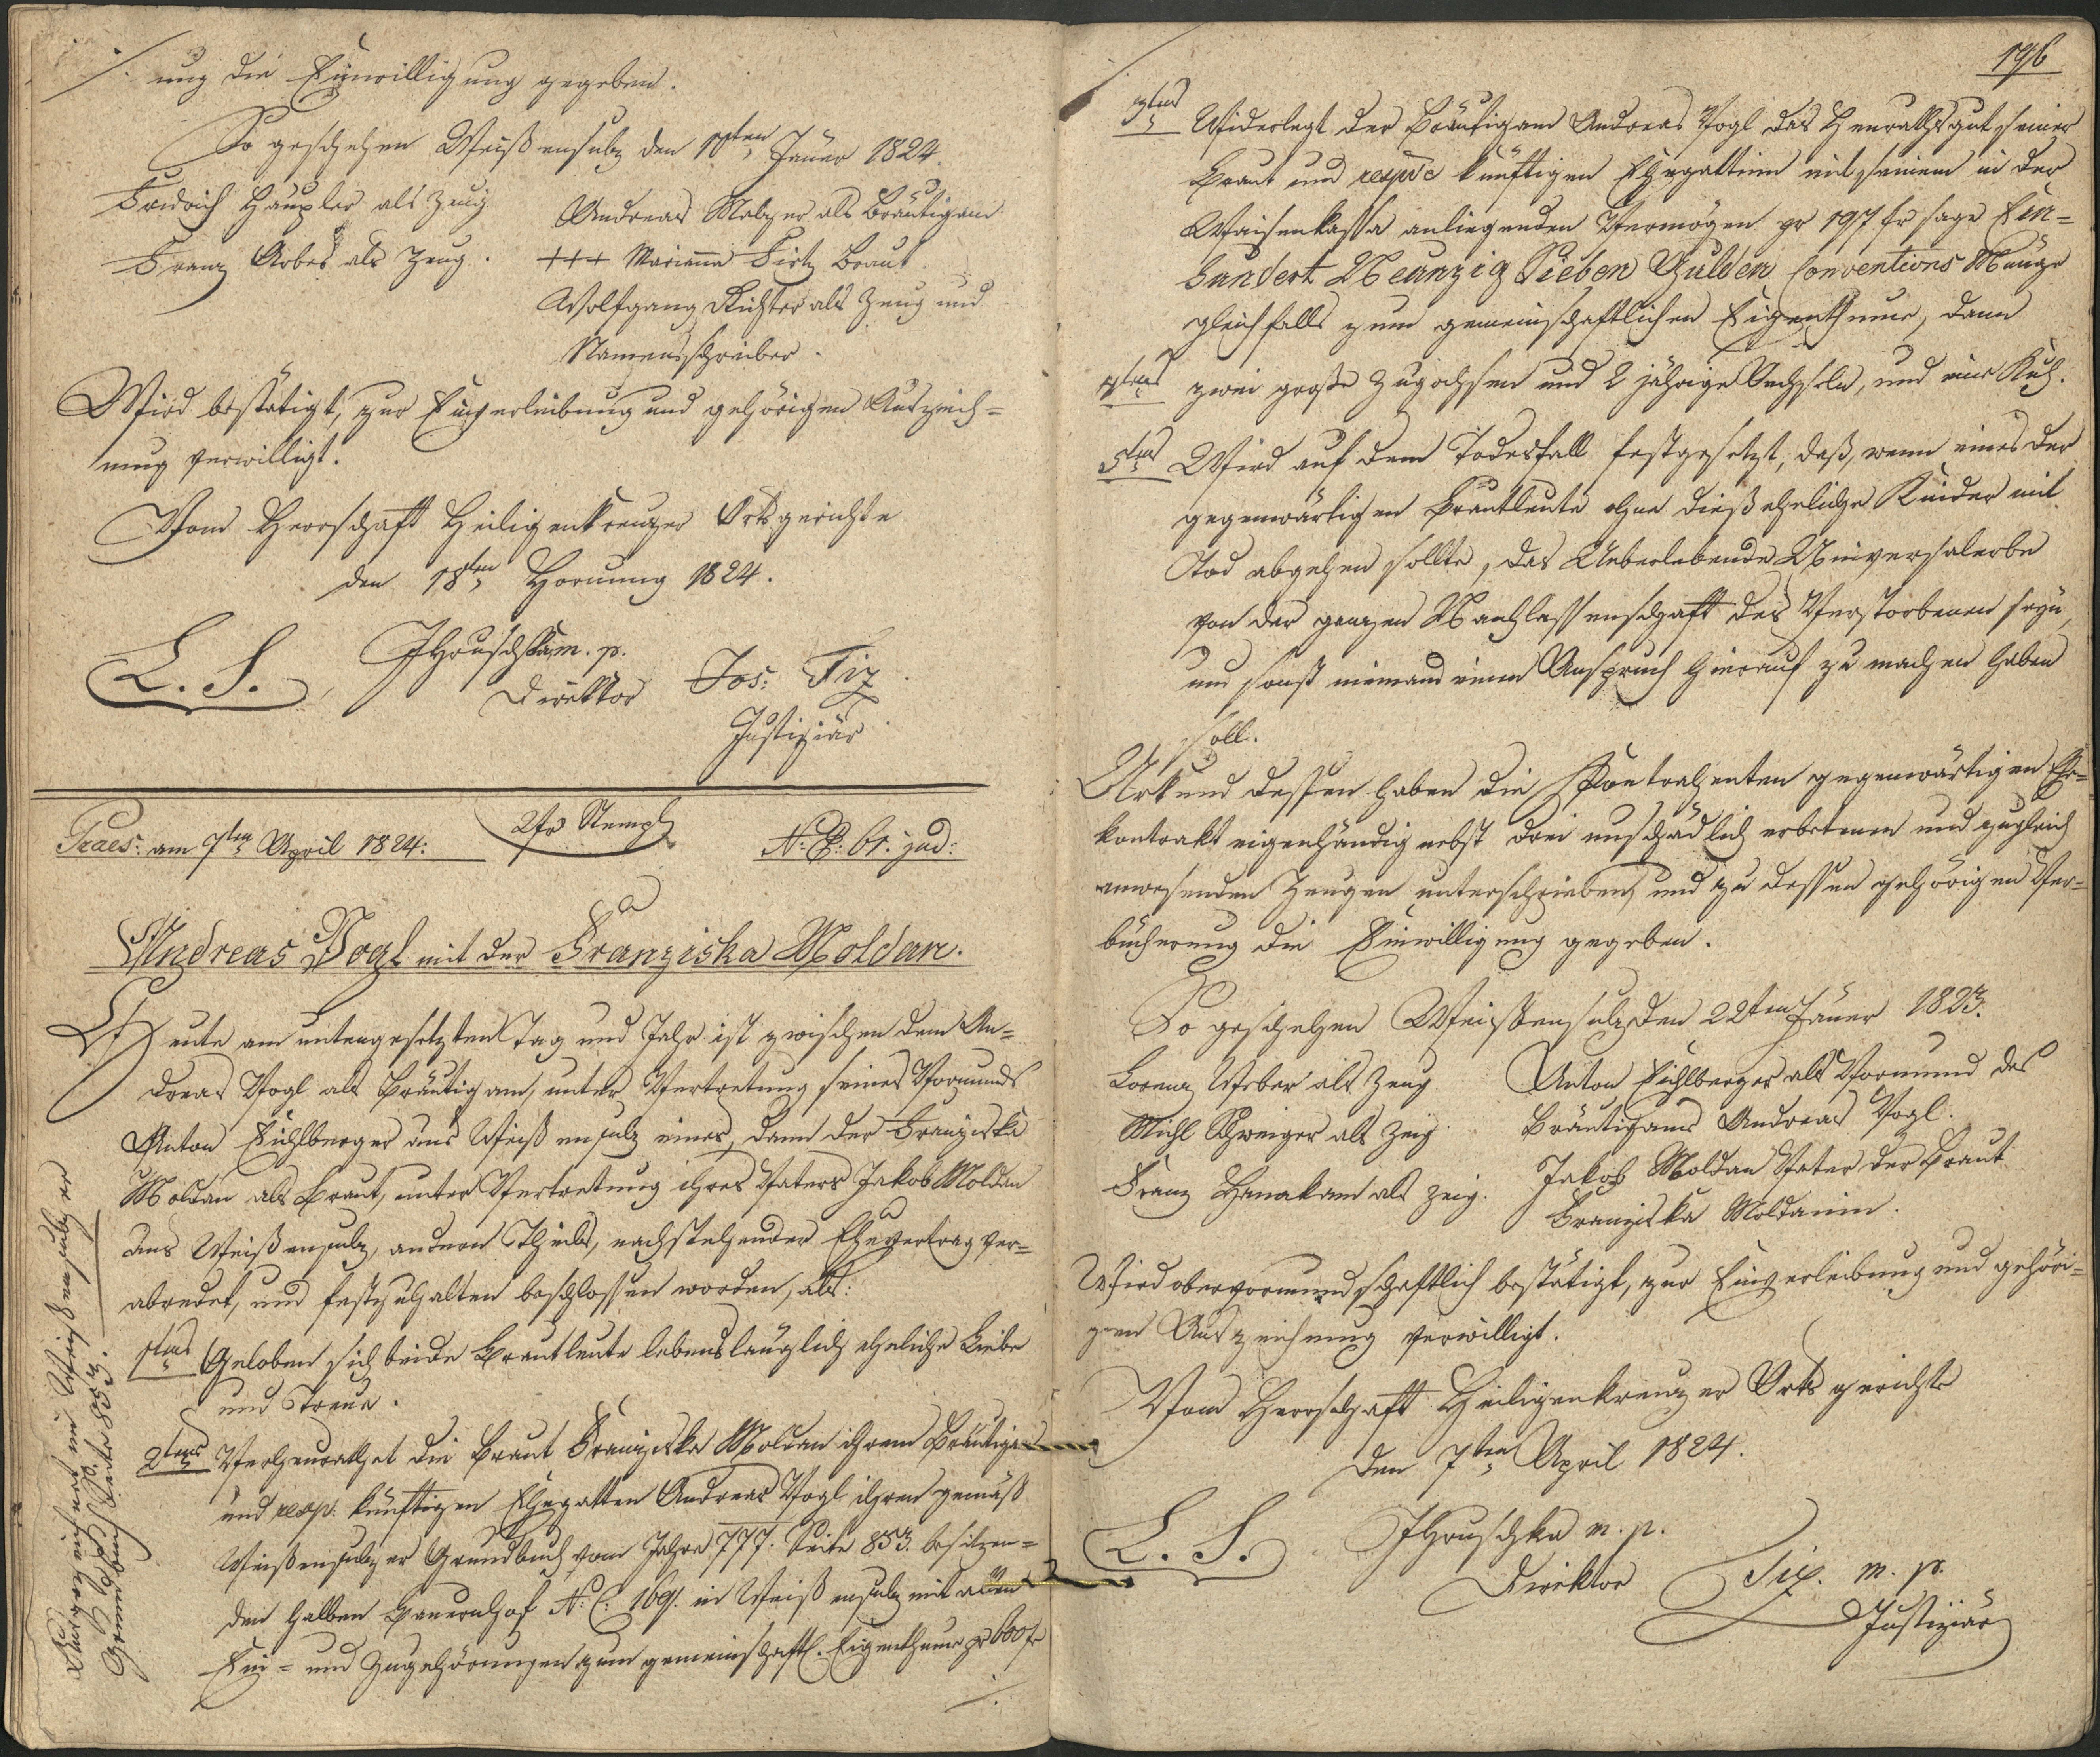 ./. ung die Einwilligung gegeben.
So geschehen Weißensulz den 10ten Jäner 1824.
Fridrich Häupler als Zeug
Franz Arbes als Zeug.
Andreas Malzer als Bräutigam
+++ Marianna Firtz Braut
Wolfgang Richter als Zeug und
Namensschreiber.
Wird bestätigt, zur Einverleibung und gehörigen Auszeich=
nung verwilligt.
Vom Herrschaft Heiligenkreuzer Ortsgerichte
den 18ten Hornung 1824.
L. S. JHruschka m. p.
Direktor
Jos: Tix
Justiziär
Praes: am 7ten April 1824:
2 fr Stempl
N: E: 61. jud:
Andreas Vogl mit der Franziska Moldan.
Heute am untengesetzten Tag und Jahr ist zwischen dem An=
dreas Vogl als Bräutigam, unter Vertretung seines Vormunds
Anton Eichlberger aus Weißensulz eines, dann der Franziska
Moldan als Braut, unter Vertretung ihres Vaters Jakob Moldan
aus Weißensulz, andern Theils, nachstehender Ehevertrag ver=
abredet, und festzuhalten beschlossen worden, als:
1tens Geloben sich beide Brautleute lebenslänglich eheliche Liebe
und Treue.
2tens Verheurathet die Braut Franziska Moldan ihrem Bräutigam
und resp. künftigen Ehegatten Andreas Vogl ihren gemäß
Weißensulzer Grundbuch vom Jahre 777. Seite 853. besitzen=
den halben Bauernhof N: C: 169. in Weißensulz mit allen
Ein= und Zugehörungen zum gemeinschaftl. Eigenthume pr 600 fr
./.
Weißensulzer
Grundbuch Seite 853.
196
3tens Widerlegt der Bräutigam Andreas Vogl das Heurathsgut seiner
Braut und respve künftigen Ehegattinn mit seinem in der
Waisenkassa anliegenden Vermögen pr 197 fr sage Ein=
hundert Neunzig Sieben Gulden Conventions Münze
gleichfalls zum gemeinschaftlichen Eigenthume, dann
4tens zwei große Zugochsen und 2 jährige Oechseln, und eine Kuh.
5tens Wird auf dem Todesfall festgesetzt, daß, wenn eines der
gegenwärtigen Brautleute ohne dieß eheliche Kinder mit
Tod abgehen sollte, das Ueberlebende Universalerbe
von der ganzen Nachlassenschaft des Verstorbenen seyn,
und sonst niemand einen Anspruch hierauf zu machen haben
soll.
Urkund dessen haben die Kontrahenten gegenwärtigen Ehe=
kontrakt eigenhändig nebst drei unschädlich erbetenen und zugleich
anwesenden Zeugen unterschrieben, und zu dessen gehörigen Ver=
bücherung die Einwilligung gegeben.
So geschehen Weißensulz den 22ten Jäner 1823.
Lorenz Weber als Zeug
Michl Schweiger als Zeig
Franz Hanakam als Zeig.
Anton Eichlberger als Vormund des
Bräutigams Andreas Vogl.
Jakob Moldan Vater der Braut
Franziska Moldanin.
Wird obervormundschaftlich bestätigt, zur Einverleibung und gehöri=
gen Auszeichnung verwilligt.
Vom Herrschaft Heiligenkreuzer Orts gerichte
den 7ten April 1824.
L. S. JHruschka m. p.
Direktor
Tix. m. p.
Justiziär